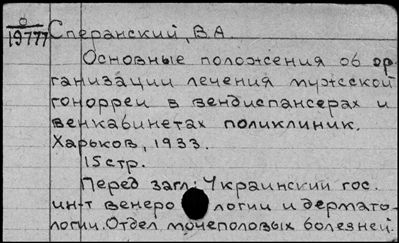 О
19777
Сперанский, В А.
Основные положения об ор-
ганизации лечения мужской
гонорреи в вендиспансерах и
венкабинетах поликлиник.
Харьков, 1933.
15 стр.
Перед загл: Украинский гос.
ин-т венеро логии и дермато-
логии. Отдел мочеполовых болезней.